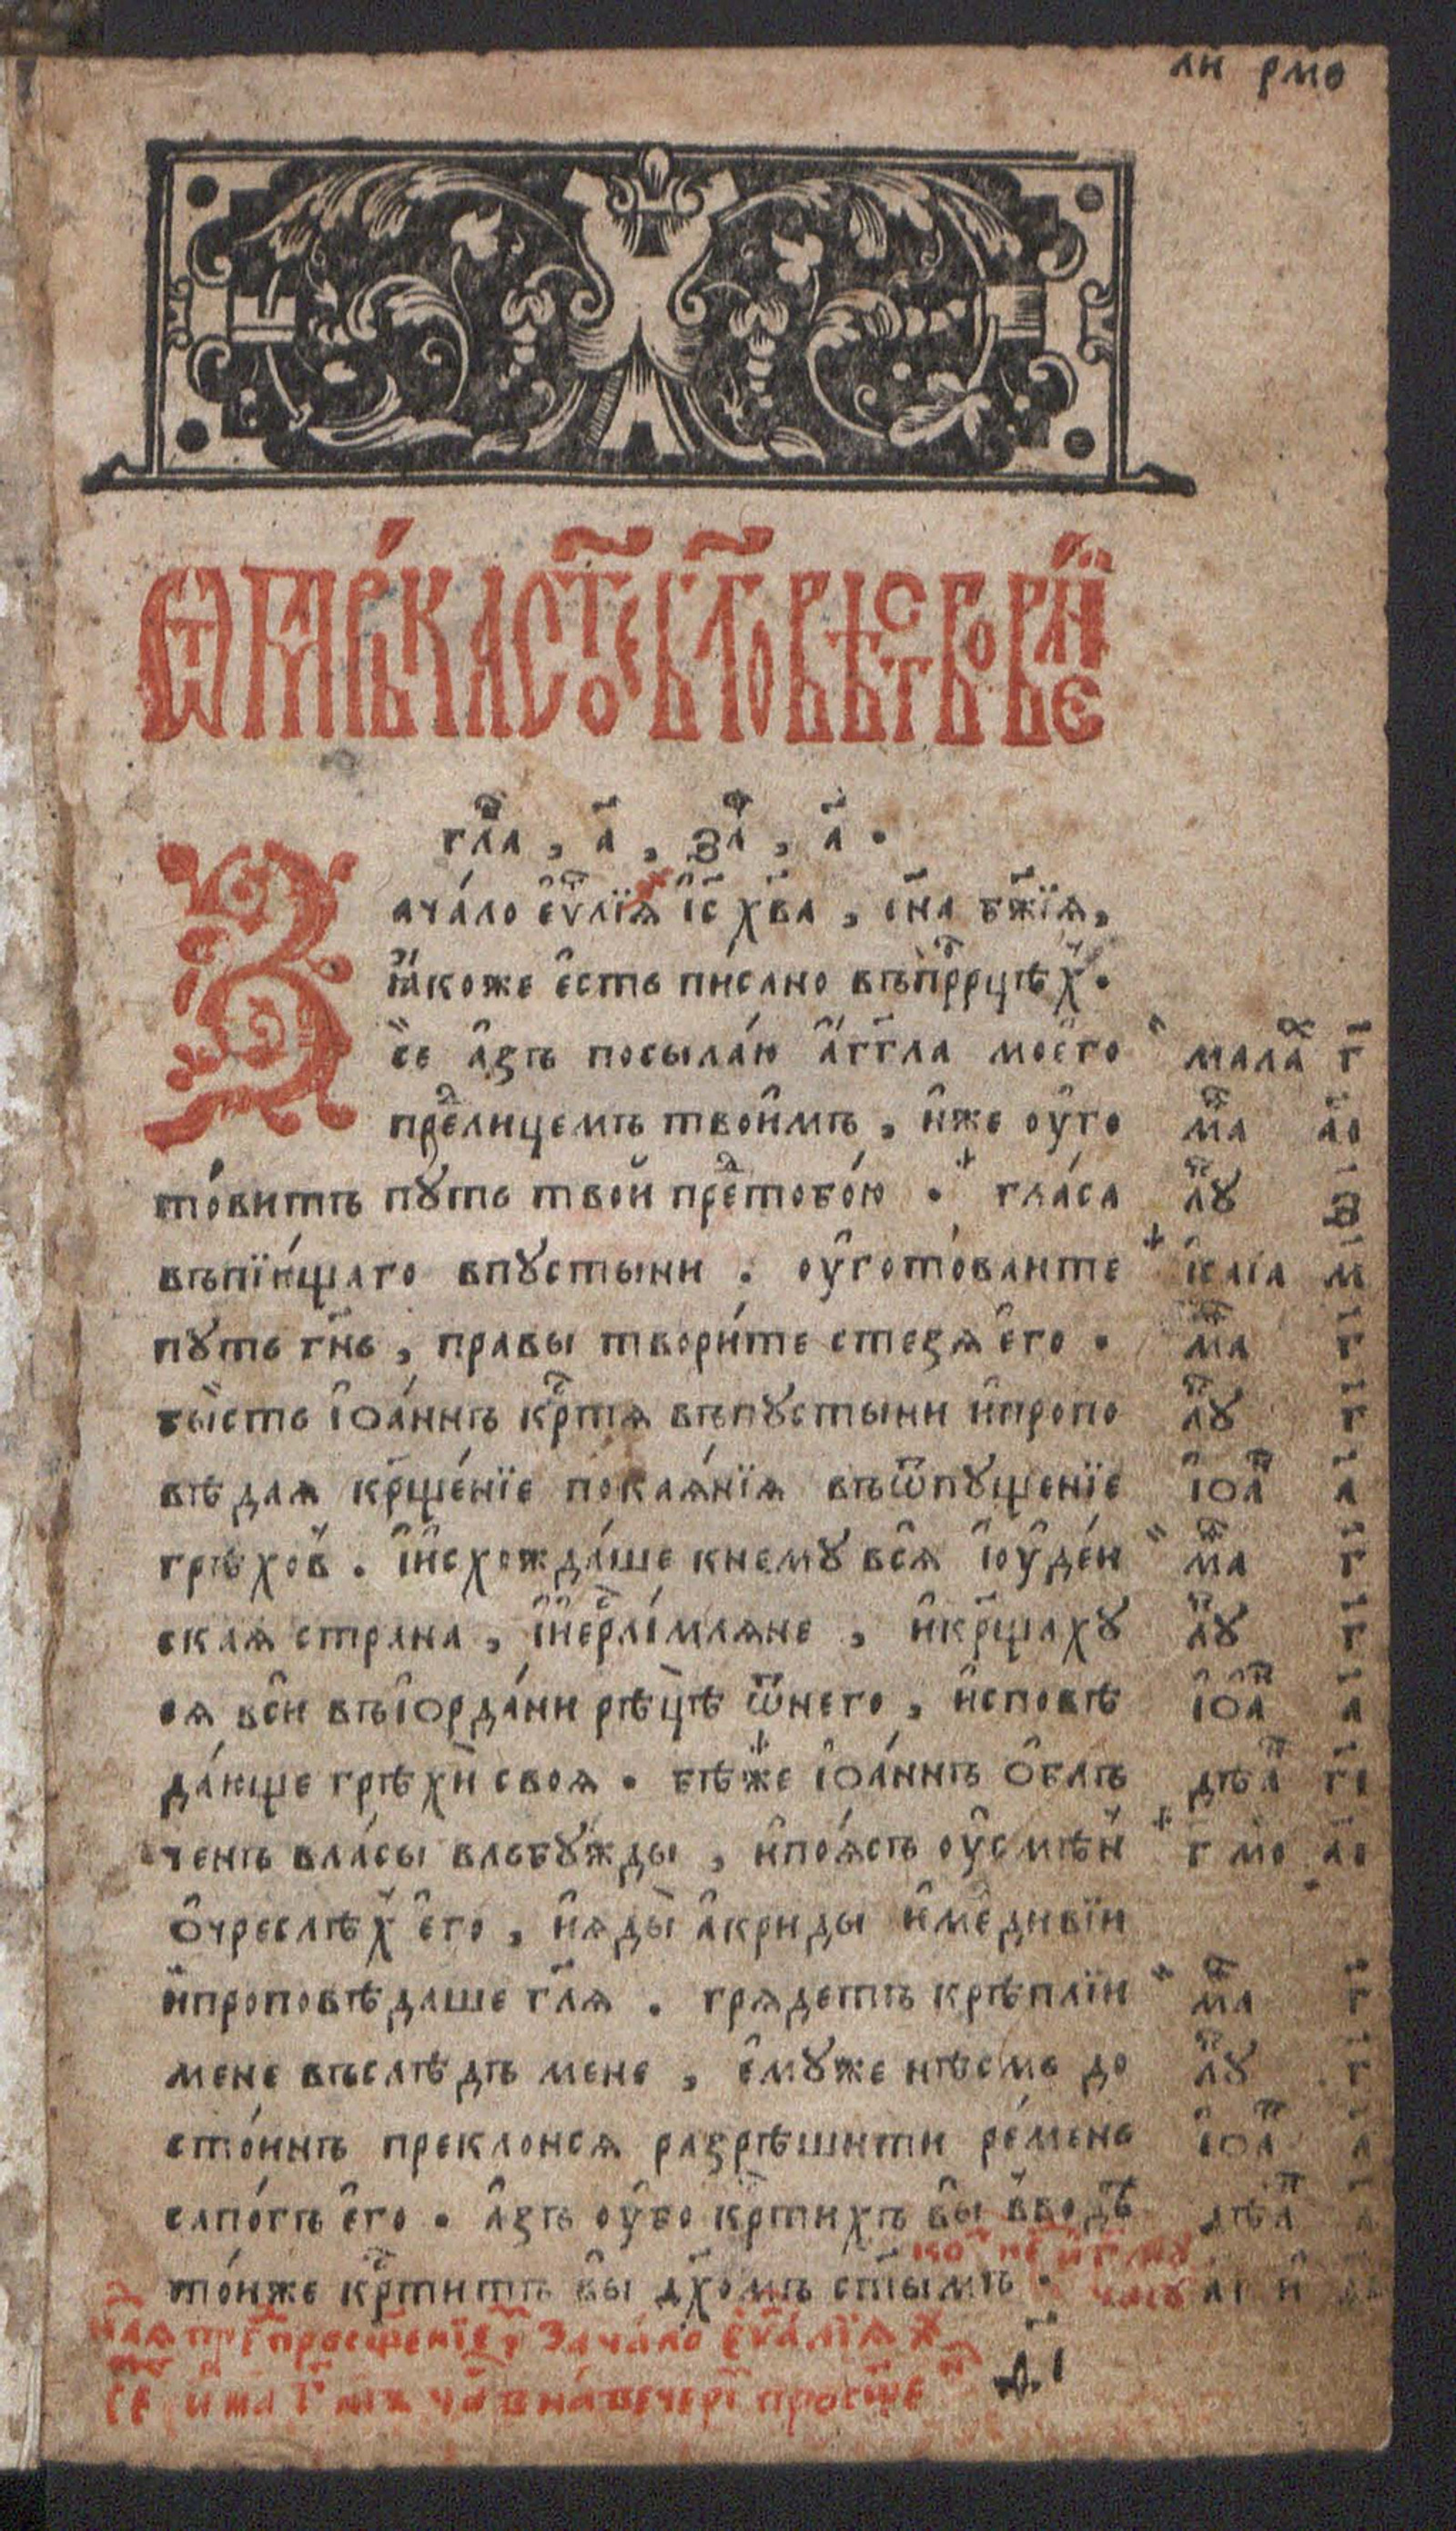 ли рмѳ
Ѿ МАРКА СТОЕ БЛГОВѢСТВОВАНЇЕ
гла҃ , а҃ , за҃ , а҃ .
Зача́ло є҆ѵⷢ҇лїѧ і҆с҃ хв҃а , сн҃а бж҃їѧ,
ꙗ҆́коже є҆сть писано въпрⷪ҇рцѣⷯ .
се а҆зъ посыла́ю а҆́гг҃ла моє҆го
преⷣлицемъ твои҆мъ , и҆же оу҆го
то́витъ пꙋть твой преⷣтобо́ю . гла́са
въпїю́щаго впꙋстыни . оу҆гото́ваите
пꙋть гн҃ь , правы твори́те стезѧ є҆го .
бы́сть і҆ѡа́ннъ крⷭ҇тѧ въпꙋстыни и҆пропо
вѣдаѧ крⷭ҇ще́нїе покаѧ́нїѧ въѿпꙋщенїе
грѣхоⷡ . і҆и҆схожда́ше кнемꙋ всѧ і҆оу҆де́и
скаѧ страна , і҆и҆ерⷭ҇ли́млѧне , и҆крⷭ҇щахꙋ
сѧ вси въі҆ѻрда́ни рѣцѣ ѿнего , и҆сповѣ
да́юще грѣхи своѧ . бѣже і҆ѡа́ннъ ѻ҆бл
ченъ вла́сы вельбꙋжды , и҆поѧ́съ оу҆смѣнъ
ѻ҆чреслѣⷯ є҆го , и҆ѧды̀ а҆криды и҆ме́дивїи
и҆проповѣдаше гл҃ѧ . грѧдетъ крѣплїи
мене въслѣдъ мене , є҆мꙋже нѣсмь до
сто́инъ преклонсѧ разрѣшити ре́мень
сапо́гъ є҆го . а҆зъ оу҆бо крⷭ҇тихъ вы̀ вводѣ
то́иже крⷭ҇титъ вы дх҃омъ ст҃ымъ .
мала г҃
маⷴ аі
лꙋⷦ з
і҆саїа м҃
маⷴ г҃
лꙋⷦ г҃
і҆ѡаⷩ а҃
маⷴ г҃
лꙋⷦ г҃
і҆ѡаⷩ а҃
дѣаⷩ гі
г҃ аі
маⷴ г҃
лꙋⷦ г҃
і҆ѡаⷩ а҃
дѣаⷩ а҃
преⷣ просщенїеⷨ Зача́ло є҆ѵⷢ҇а́лїѧ
чаⷭ нáвечерї просще
дⷧі